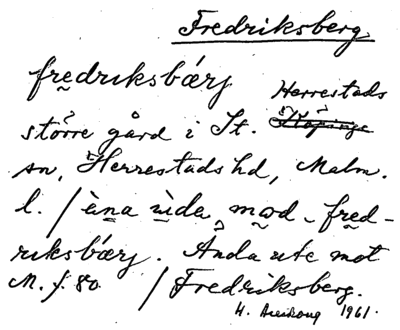 Fredriksberg
fredriksbærj
Herrestads
större gård i St. Köpinge
sn, Herrestads hd, Malm.
l. / ä̀na ùda mod fred-
riksbærj. Ända ute mot
M. f. 80 / Fredriksberg.
H. 1961.